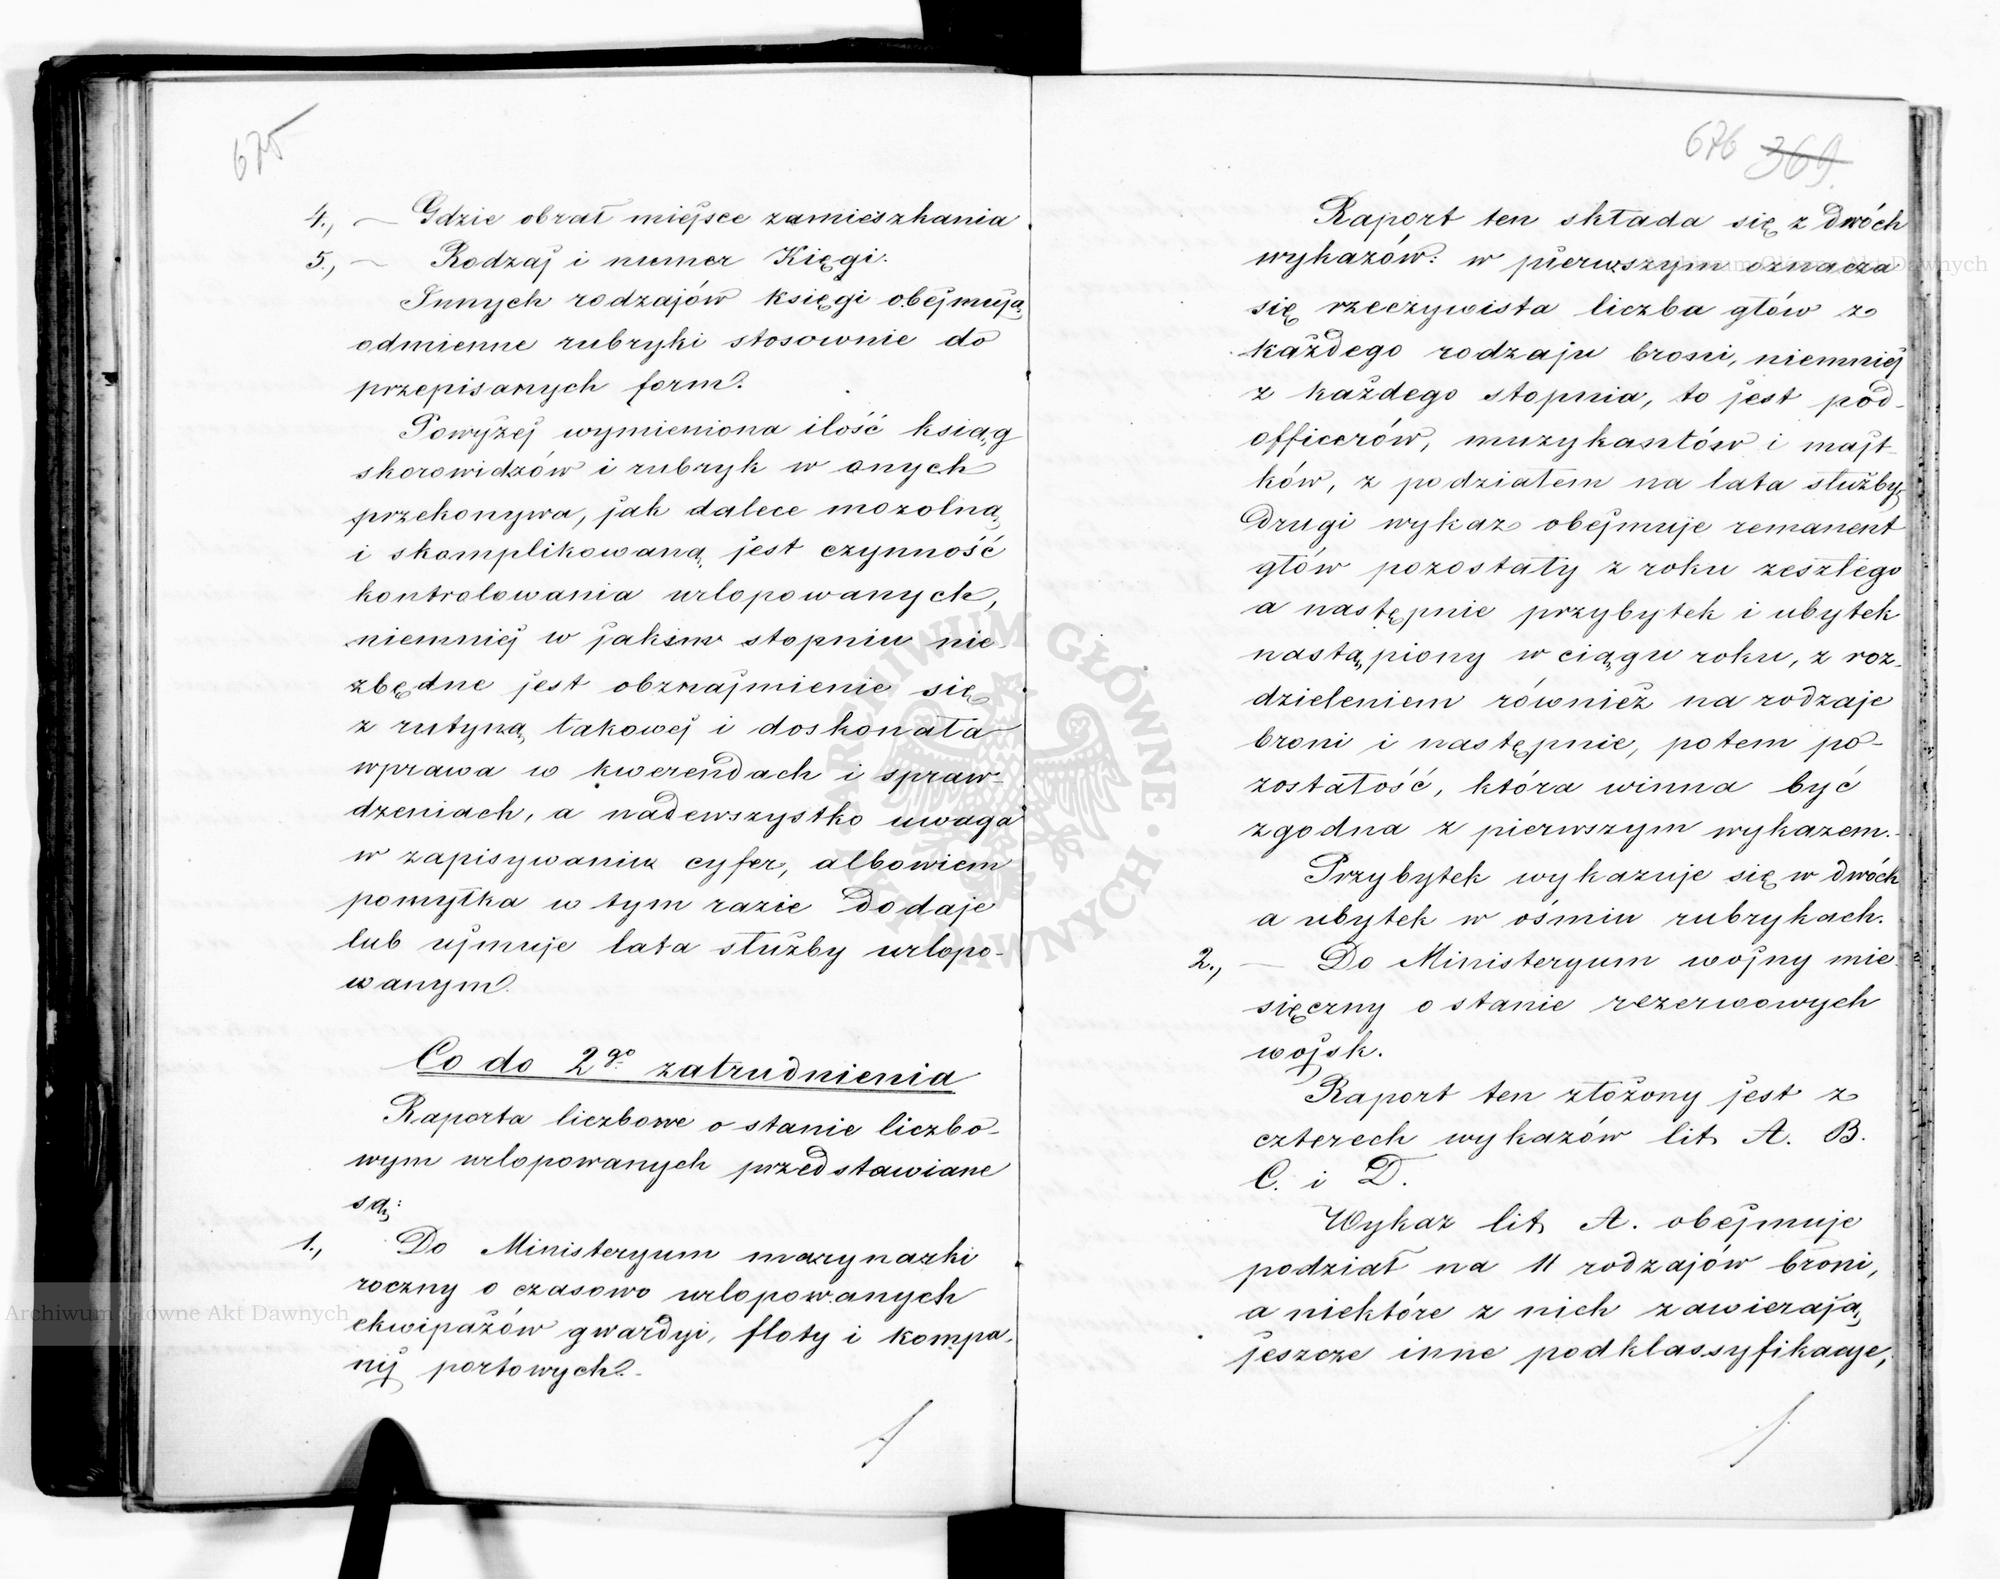 675
4., — Gdzie obrał miejsce zamieszkania
5., — Rodzaj i numer Kięgi.
Innych rodzajów księgi obejmują
odmienne rubryki stosownie do
przepisanych form.
Powyżej wymieniona ilość ksiąg
skorowidzów i rubryk w onych
przekonywa, jak dalece mozolną
i skomplikowaną jest czynność
kontrolowania urlopowanych,
niemniej w jakim stopniu nie-
zbędne jest obznajmienie się
z rutyną takowej i doskonała
wprawa w kwerendach i spraw-
dzeniach, a nadewszystko uwaga
w zapisywaniu cyfer, albowiem
pomyłka w tym razie dodaje
lub ujmuje lata służby urlopo-
wanym.
Co do 2go zatrudnienia
Raporta liczbowe o stanie liczbo-
wym urlopowanych przedstawiane
są:
1., Do Ministeryum marynarki
roczny o czasowo urlopowanych
ekwipażów gwardyi, floty i kompa-
nij portowych.
676 369.
Raport ten składa się z dwóch
wykazów: w pierwszym oznacza
się rzeczywista liczba głów z
każdego rodzaju broni, niemniej
z każdego stopnia, to jest pod-
officerów, muzykantów i majt-
ków, z podziałem na lata służby,
Drugi wykaz obejmuje remanent
głów pozostały z roku zeszłego
a następnie przybytek i ubytek
nastąpiony w ciągu roku, z roz-
dzieleniem również na rodzaje
broni i następnie, potem po-
zostałość, która winna być
zgodna z pierwszym wykazem.
Przybytek wykazuje się w dwóch
a ubytek w ośmiu rubrykach.
2., — Do Ministeryum wojny mie-
sięczny o stanie rezerwowych
wojsk.
Raport ten złożony jest z
czterech wykazów lit. A. B.
C. i D.
Wykaz lit. A. obejmuje
podział na 11 rodzajów broni,
a niektóre z nich zawierają
jeszcze inne podklassyfikacje,
ARCHIWUM GŁÓWNE AKT DAWNYCH
Archiwum Główne Akt Dawnych
Archiwum Główne Akt Dawnych